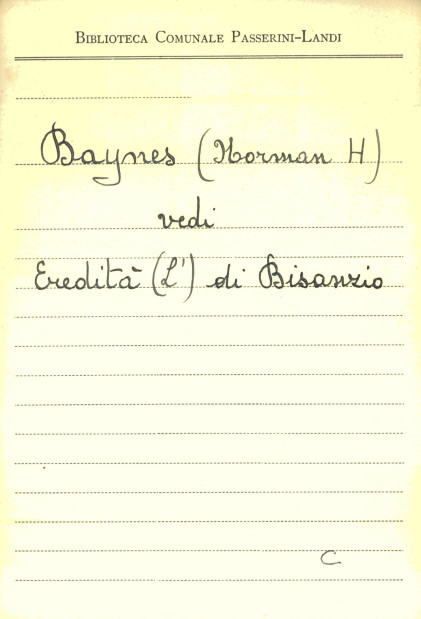 Biblioteca Comunale Passerini-Landi
Baynes (Norman H)
vedi
Eredità (L') di Bisanzio
C